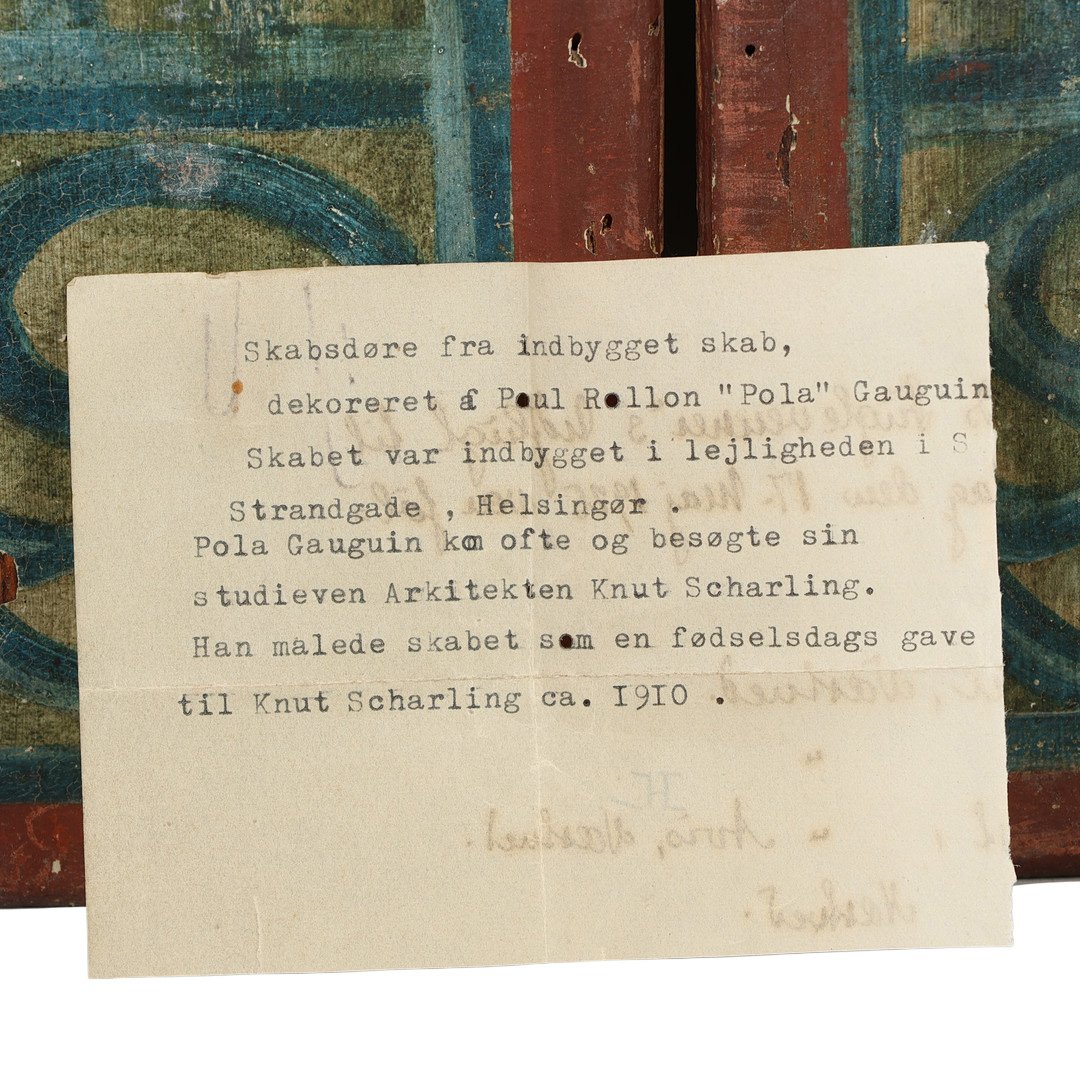 Skabsdøre fra indbygget skab,
dekoreret af Poul Rollon "Pola" Gauguin
Skabet var indbygget i lejligheden i S
Strandgade , Helsingør .
Pola Gauguin kom ofte og besøgte sin
studieven Arkitekten Knut Scharling.
Han malede skabet som en fødselsdags gave
til Knut Scharling ca. I9IO .